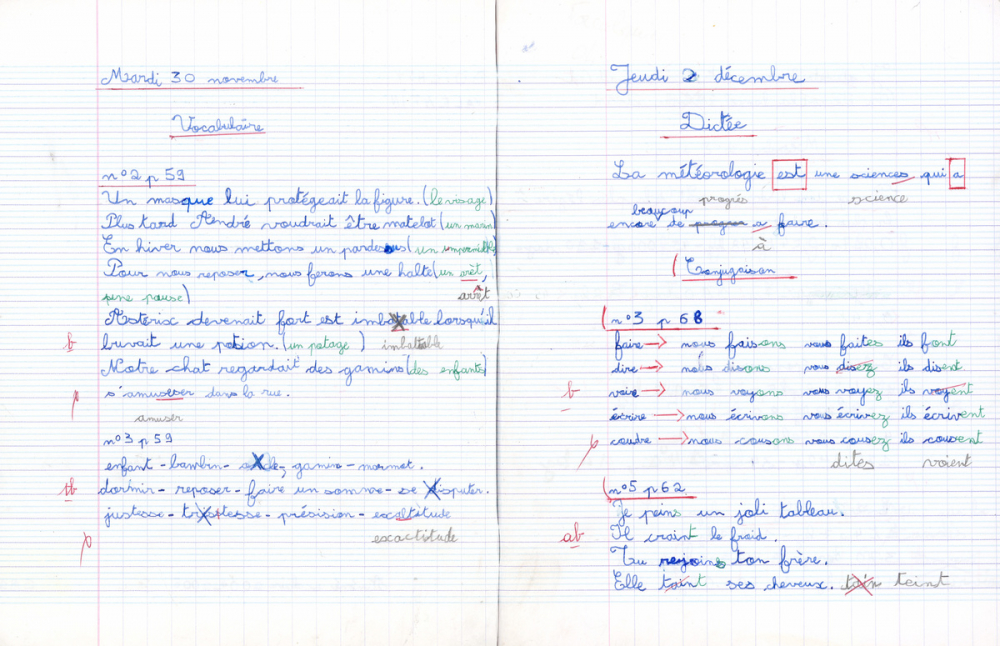 Mardi 30 novembre
Vocabulaire
n°2 p 59
Un masque lui protégeait la figure. (le visage)
Plus tard André voudrait être matelot (un marin)
En hiver nous mettons un pardessus (un imperméable)
Pour nous reposer, nous ferons une halte (un arèt,
pene pause) arrêt
Astérix devenait fort est imbatable lorsqu'il
b buvait une potion. (un potage) imbattable
Notre chat regardait des gamins (des enfants)
p s'amuseser dans la rue.
amuser
n°3 p 59
enfant - bambin - - gamin - mormet.
tb dormir - reposer - faire un somme - se disputer.
justesse - tristesse - présision - escaltétude
p escactitude
Jeudi 2 décembre
Dictée
La météorologie est une sciences qui a
progrès science
beaucoup
encore de a faire.
à
Conjugaison
n°3 p 68
faire → nous faisons vous faites ils font
dire → nous disons vous disez ils disent
b voir → nous voyons vous voyez ils voyent
écrire → nous écrivons vous écrivez ils écrivent
p coudre → nous cousons vous cousez ils cousent
dites voient
n°5 p 62
Je peins un joli tableau.
ab Il craint le froid.
Tu rejoins ton frère.
Elle taint ses cheveux. tain teint